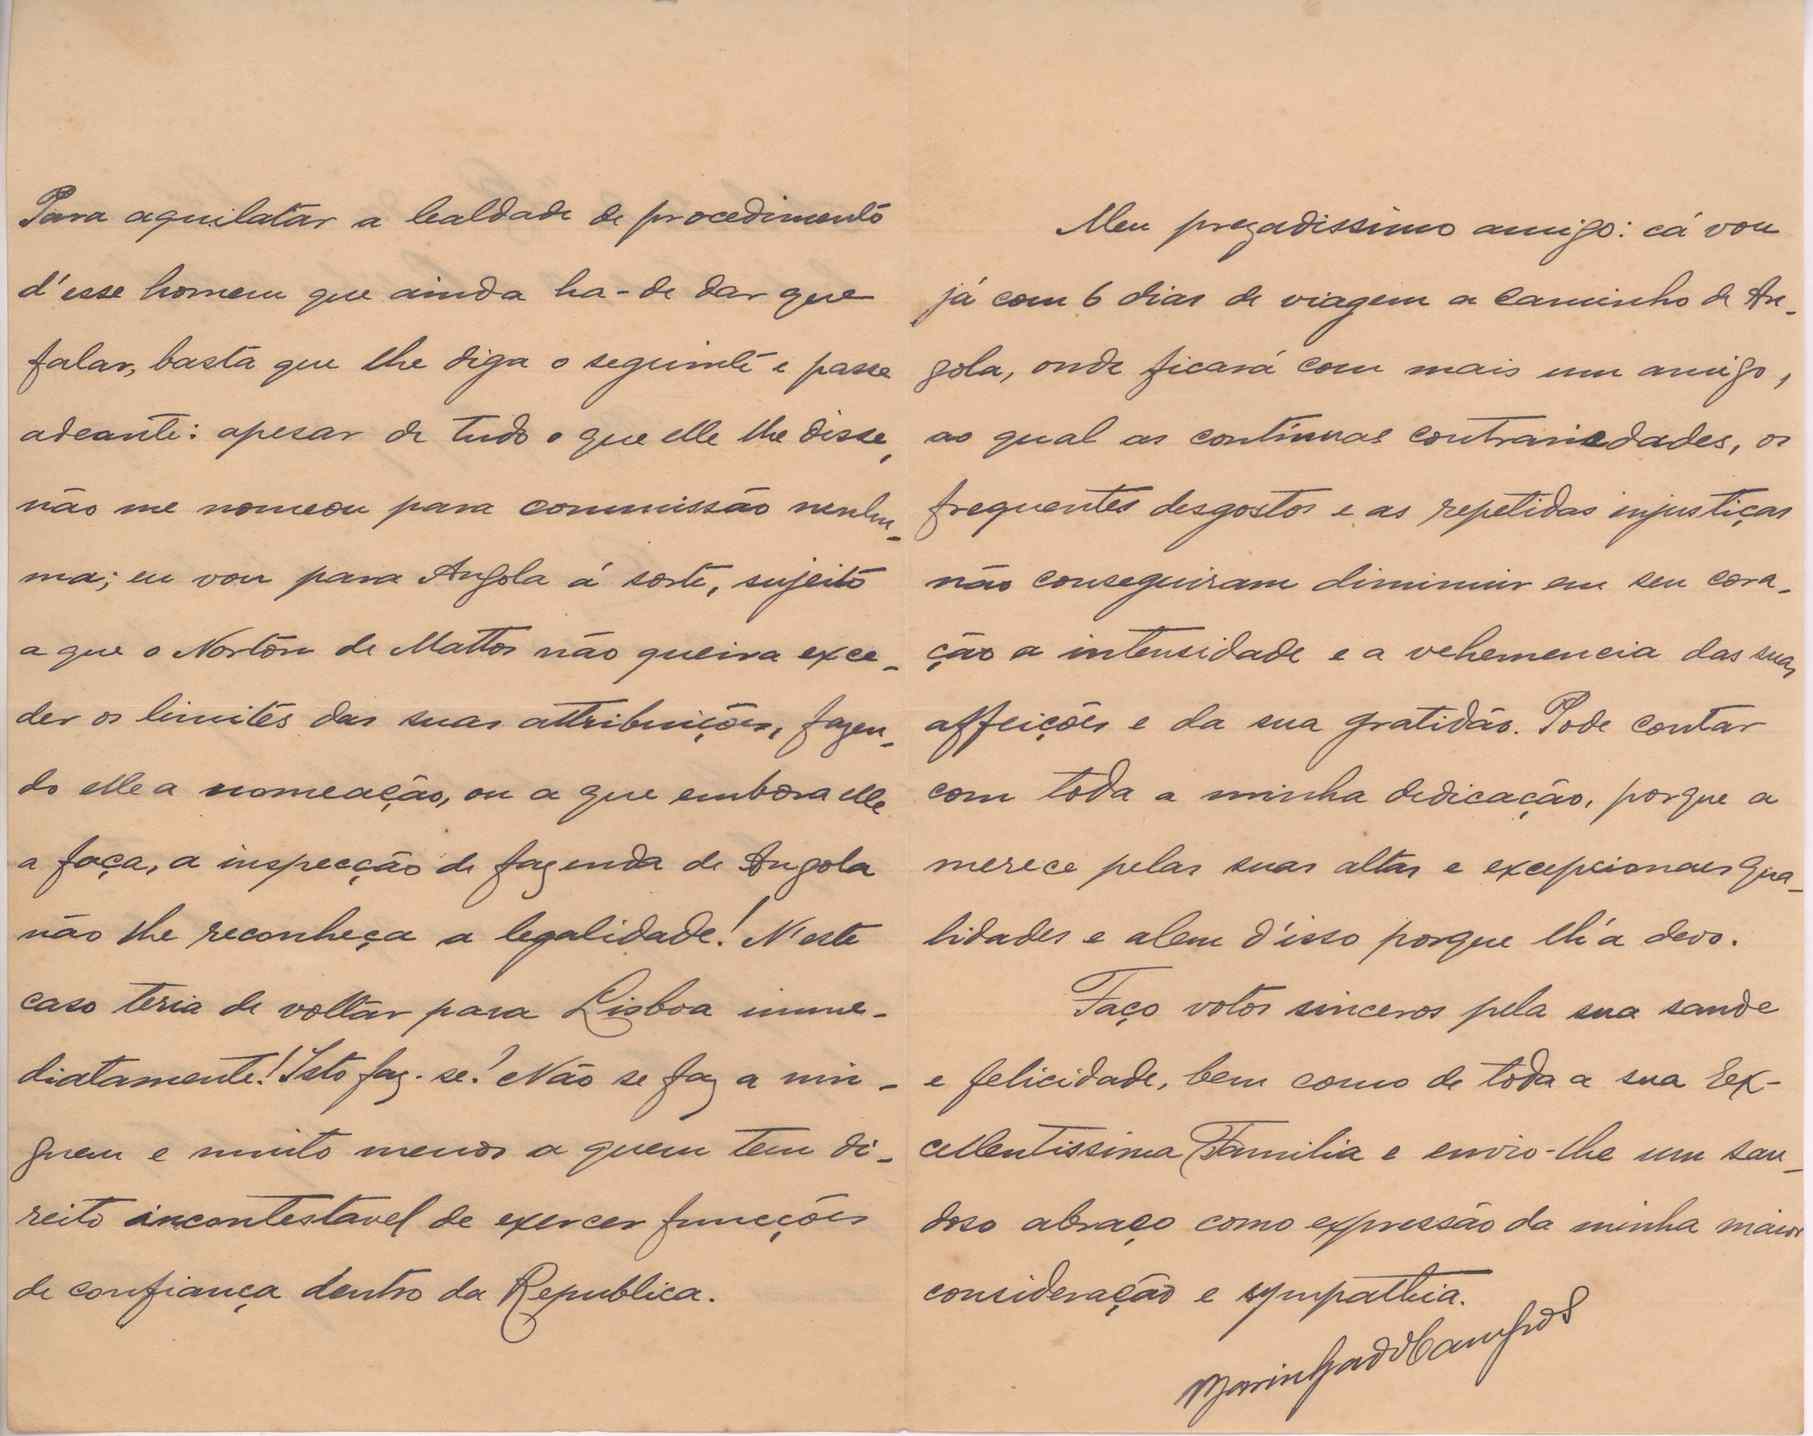 Para aquilatar a lealdade de procedimento
d'esse homem que ainda ha-de dar que
falar, basta que lhe diga o seguinte e passe
adeante: apesar de tudo o que elle lhe disse,
não me nomeou para commissão nenhu-
ma; eu vou para Angola á sorte, sujeito
a que o Norton de Mattos não queira exce-
der os limites das suas attribuições, fazen-
do elle a nomeação, ou a que embora elle
a faça, a inspecção de fazenda de Angola
não lhe reconheça a legalidade! N'este
caso teria de voltar para Lisboa imme-
diatamente! Isto faz-se? Não se faz a nin-
guem e muito menos a quem tem di-
reito incontestavel de exercer funcções
de confiança dentro da Republica.
Meu prezadissimo amigo: cá vou
já com 6 dias de viagem a caminho de An-
gola, onde ficará com mais um amigo,
ao qual as contínuas contrariedades, os
frequentes desgostos e as repetidas injustiças
não conseguiram diminuir em seu cora-
ção a intensidade e a vehemencia das suas
affeições e da sua gratidão. Pode contar
com toda a minha dedicação, porque a
merece pelas suas altas e excepcionaes qua-
lidades e alem d'isso porque lh'a devo.
Faço votos sinceros pela sua saude
e felicidade, bem como de toda a sua Ex-
cellentissima Familia e envio-lhe um sau-
doso abraço como expressão da minha maior
consideração e sympathia.
Marinha de Campos